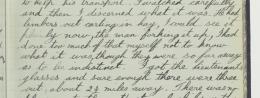 to help his transport. I watched carefully
and then I discerned what it was. He
timbers out carting in hay, I could see it
plainly now, the man forking it up, I had
done too much of that myself not to know
what it was, though they were so far away
as to be indistinct. I got the lieutenants
glasses and sure enough there were three
out, about 2½ miles away. There was no